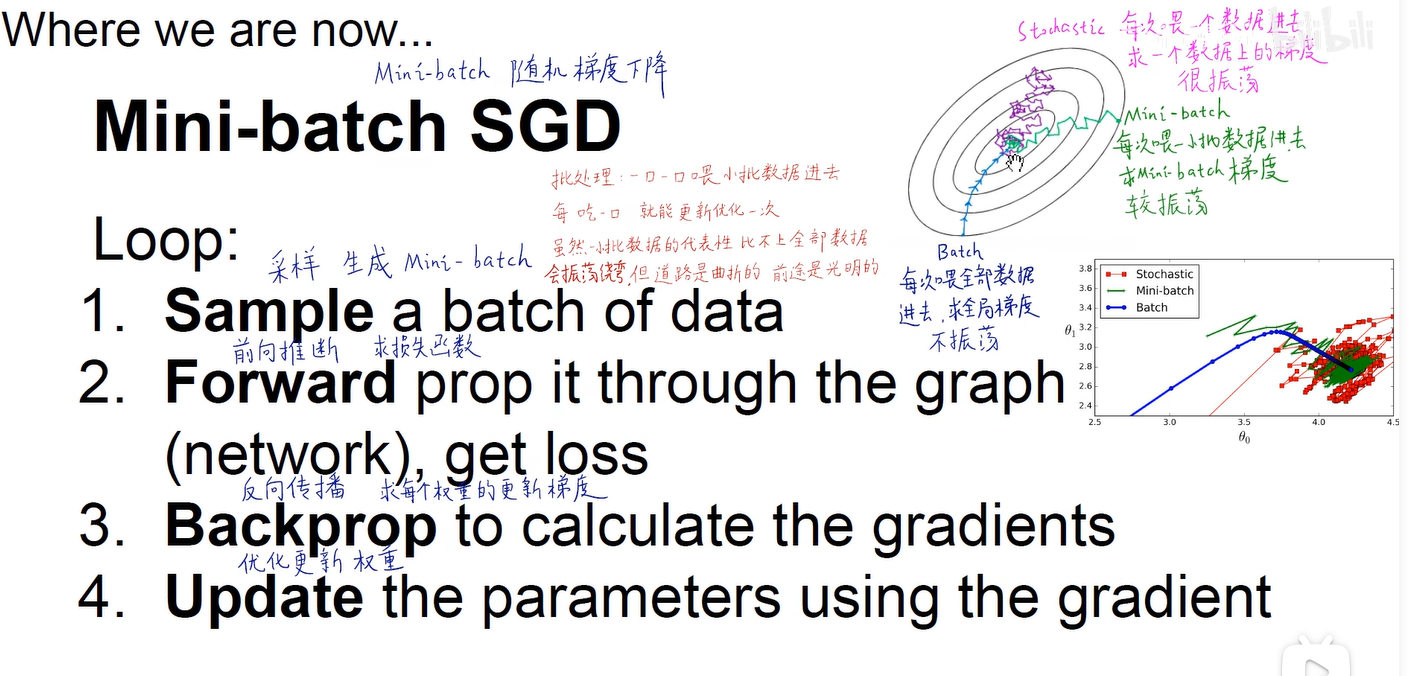 Where we are now...
Mini-batch 随机梯度下降
Mini-batch SGD
批处理:一口一口喂小批数据进去
每吃一口 就能更新优化一次
虽然一小批数据的代表性 比不上全部数据
会振荡绕弯,但道路是曲折的 前途是光明的
Loop:
采样 生成 Mini-batch
1. Sample a batch of data
前向推断 求损失函数
2. Forward prop it through the graph
(network), get loss
反向传播 求每个权重的更新梯度
3. Backprop to calculate the gradients
优化更新 权重
4. Update the parameters using the gradient
Stochastic 每次喂一个数据进去
求一个数据上的梯度
很振荡
bilibili
Mini-batch
每次喂一小批数据进去
求Mini-batch梯度
较振荡
Batch
每次喂全部数据
进去,求全局梯度
不振荡
Stochastic
Mini-batch
Batch
3.8
3.6
3.4
θ1 3.2
3.0
2.8
2.6
2.4
2.5 3.0 3.5 4.0 4.5
θ0